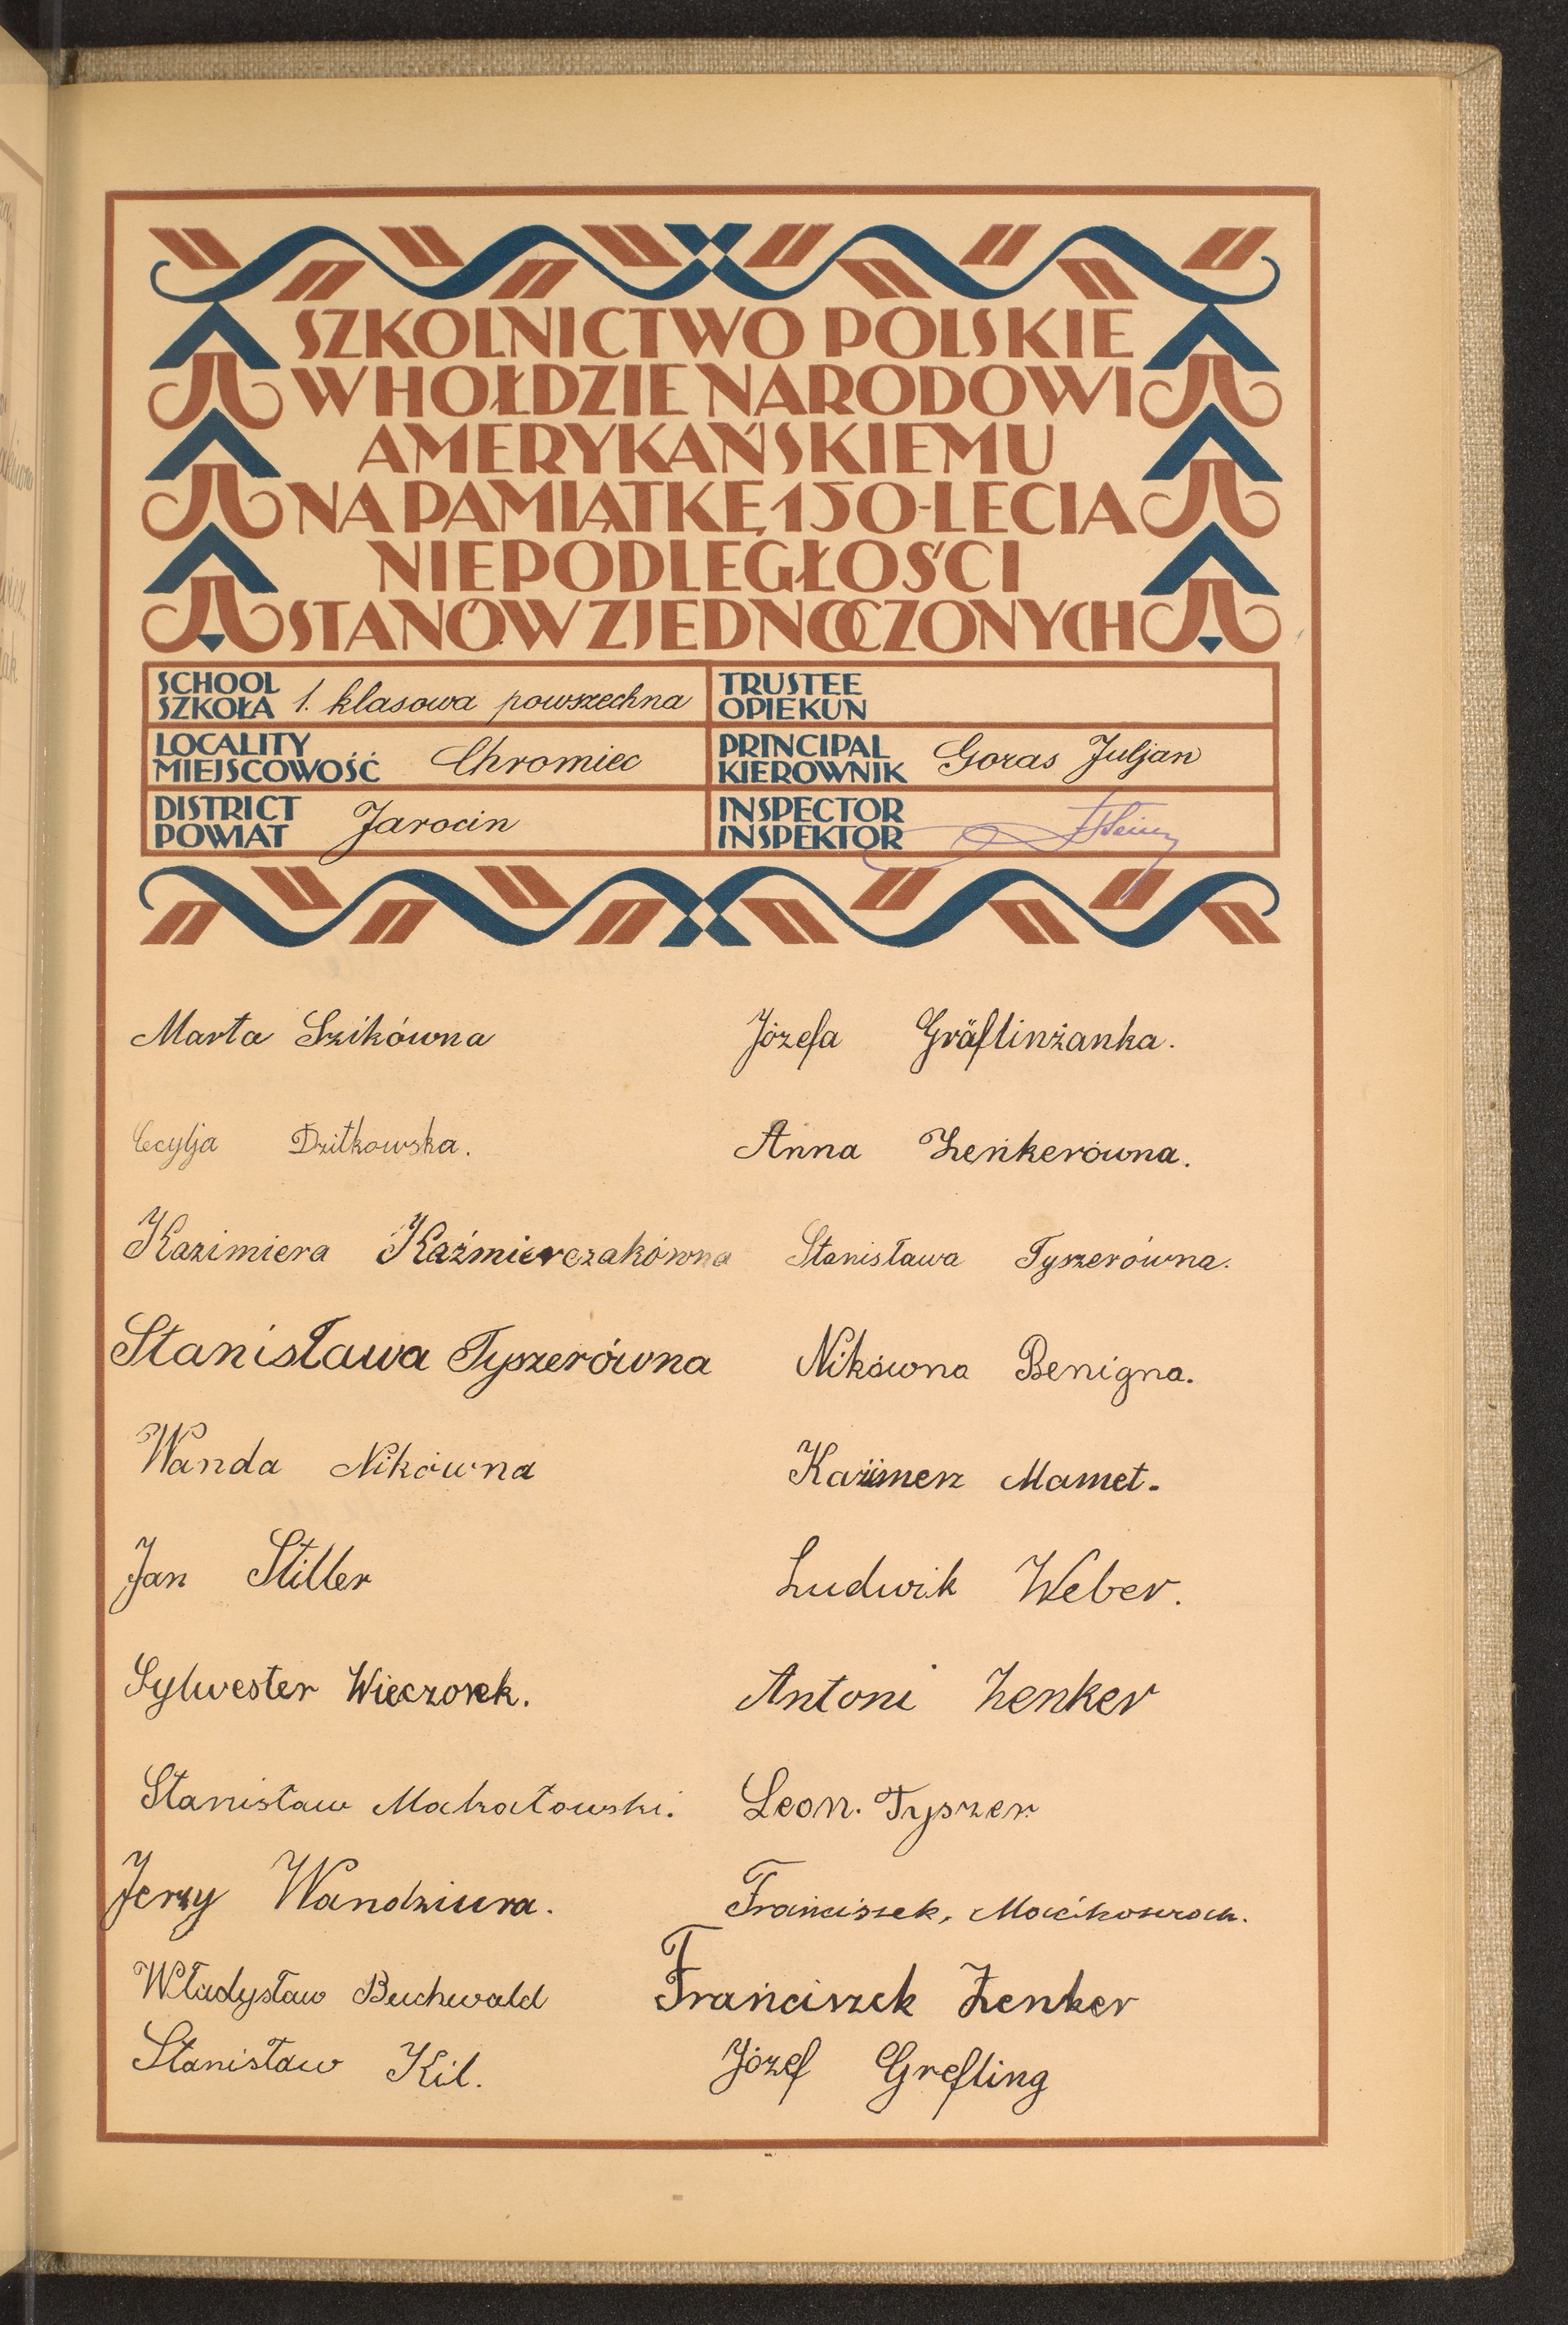 SZKOLNICTWO POLSKIE
W HOŁDZIE NARODOWI
AMERYKAŃSKIEMU
NA PAMIĄTKĘ 150-LECIA
NIEPODLEGŁOŚCI
STANÓW ZJEDNOCZONYCH
SCHOOL
SZKOŁA 1. klasowa powszechna
TRUSTEE
OPIEKUN
LOCALITY
MIEJSCOWOŚĆ Chromiec
PRINCIPAL
KIEROWNIK Goras Juljan
DISTRICT
POWIAT Jarocin
INSPECTOR
INSPEKTOR
Marta Szikówna
Józefa Gräflinżanka.
Cecylja Dzitkowska.
Anna Zenkerówna.
Kazimiera Kaźmierczakówna
Stanisława Tyszerówna.
Stanisława Tyszerówna
Nikówna Benigna.
Wanda Nikówna
Kazimerz Mamet.
Jan Stiller
Ludwik Weber.
Sylwester Wieczorek.
Antoni Zenker
Stanisław Makatowski.
Leon. Tyszer
Jerzy Wandziura.
Franciszek,
Władysław Buchwald
Franciszek Zenker
Stanisław Kil.
Józef Grefling